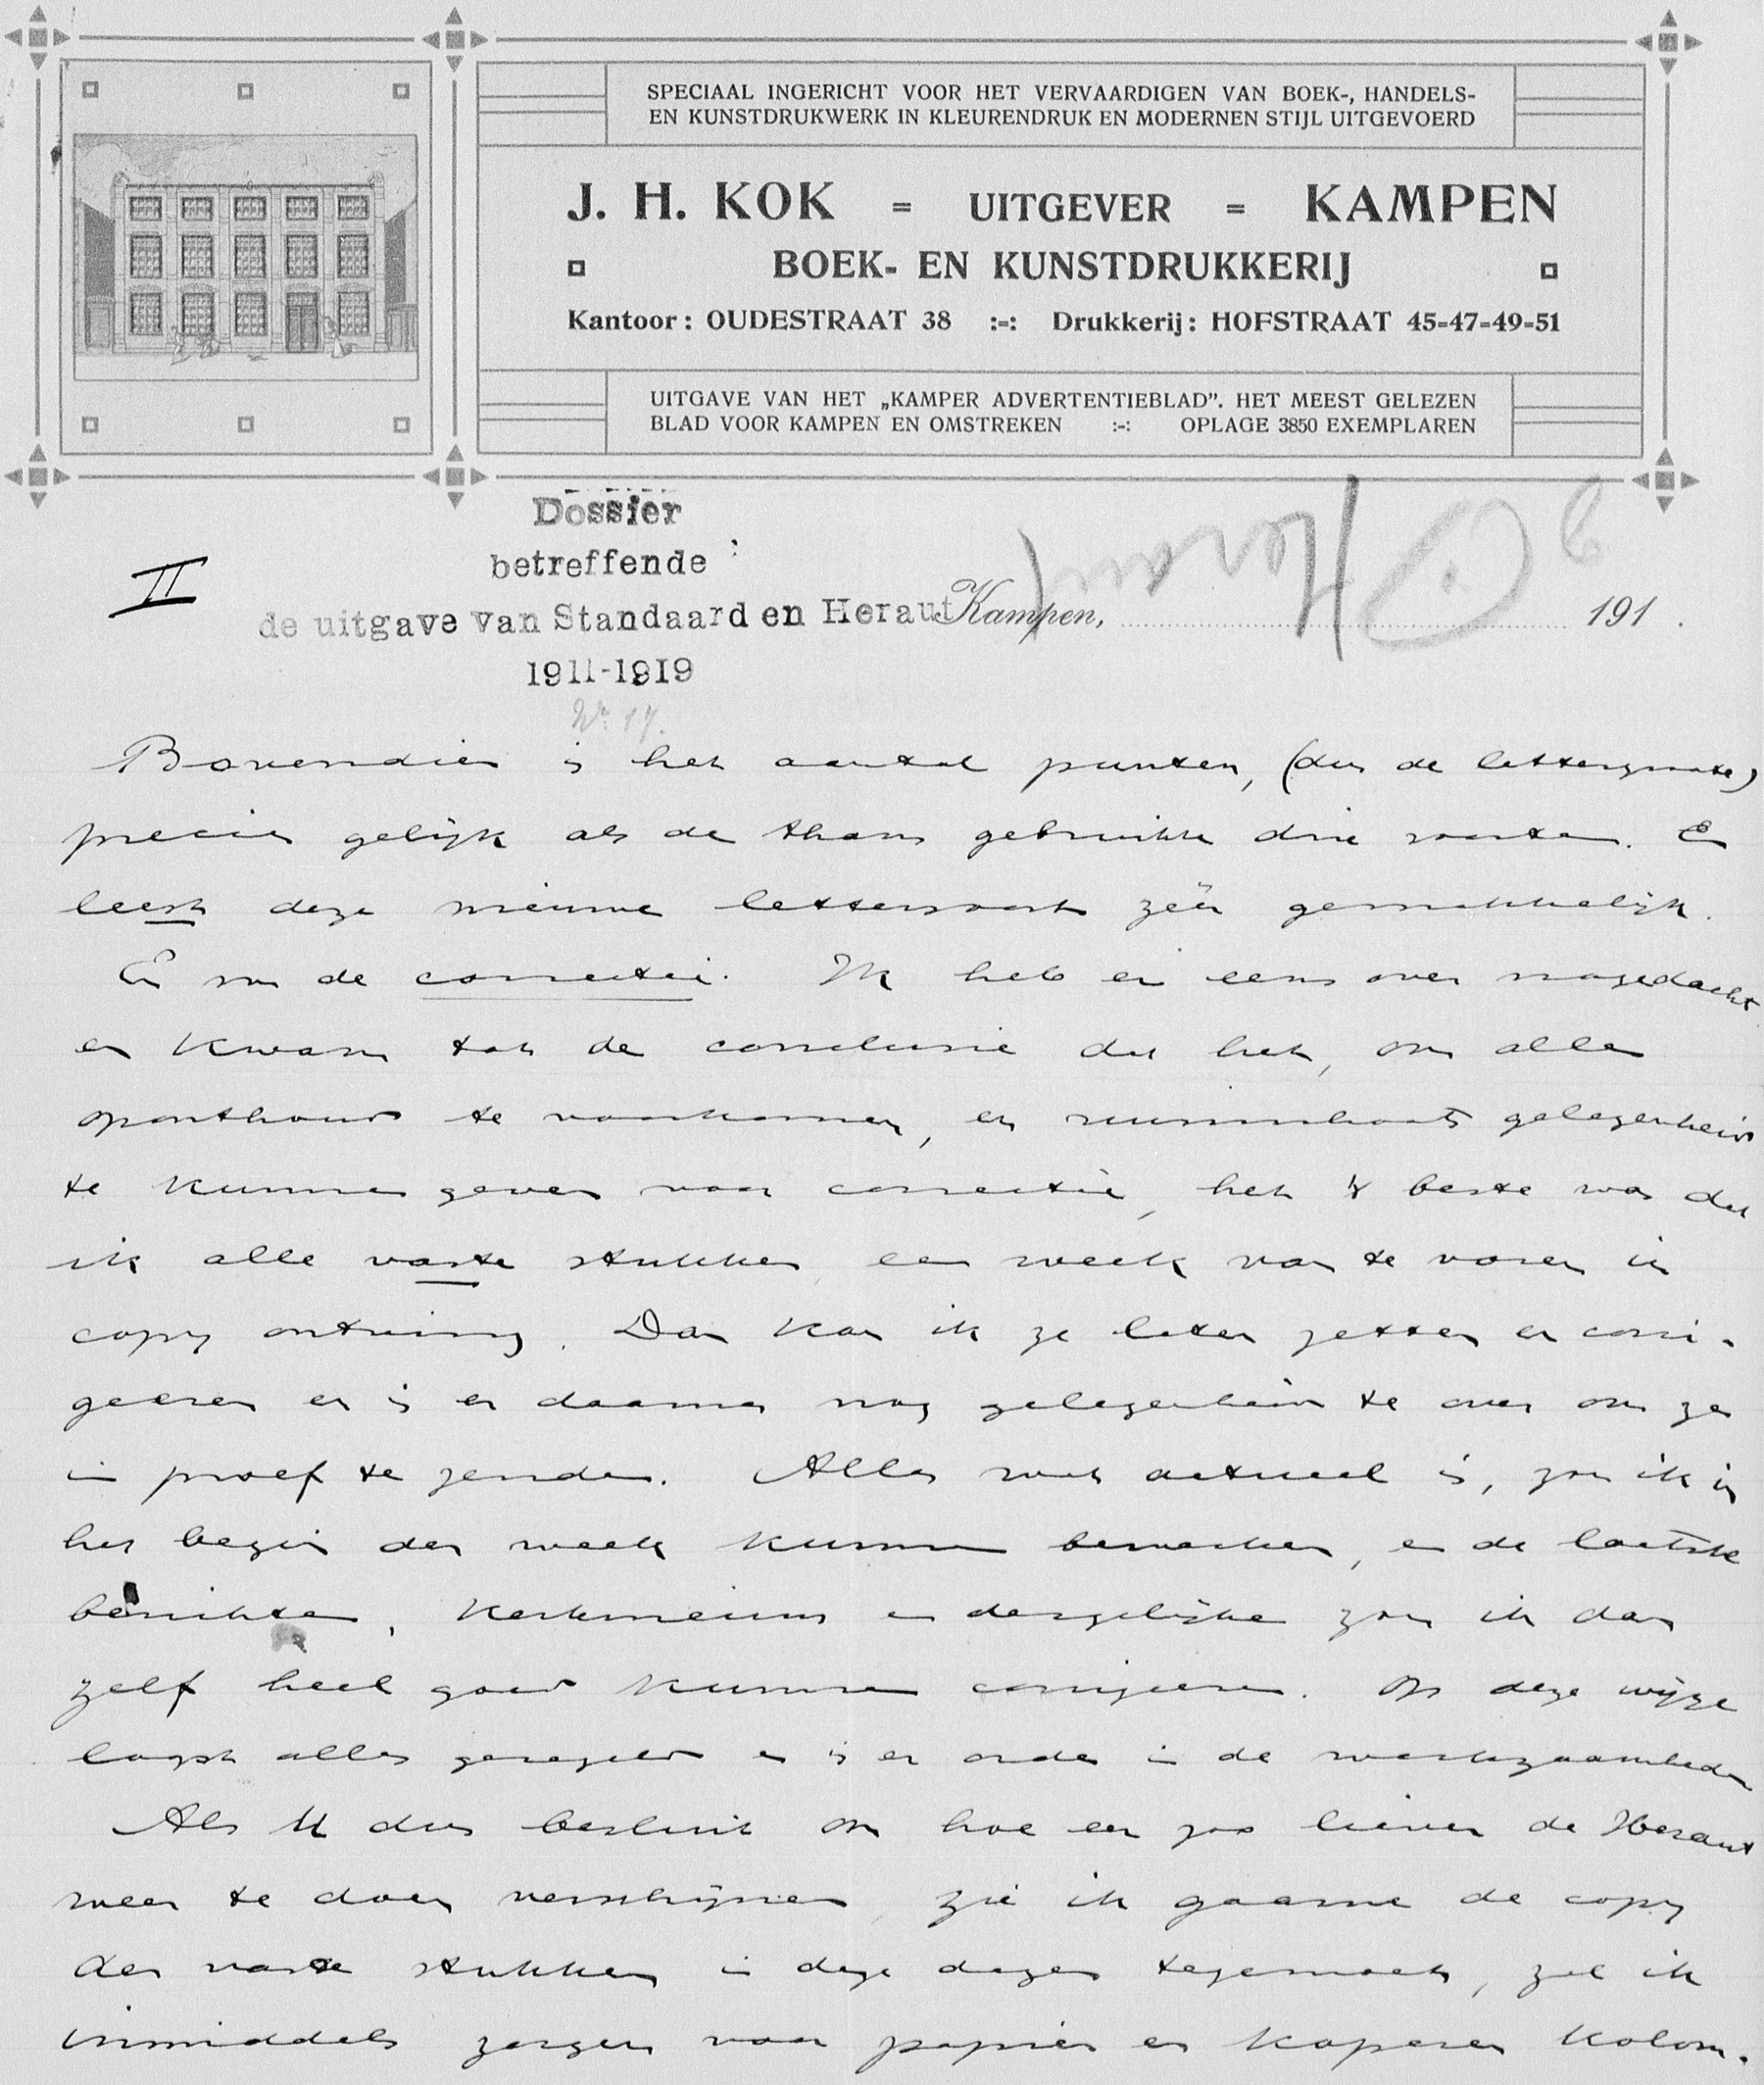 SPECIAAL INGERICHT VOOR HET VERVAARDIGEN VAN BOEK-, HANDELS-
EN KUNSTDRUKWERK IN KLEURENDRUK EN MODERNEN STIJL UITGEVOERD
J. H. KOK = UITGEVER = KAMPEN
BOEK- EN KUNSTDRUKKERIJ
Kantoor: OUDESTRAAT 38 :-: Drukkerij: HOFSTRAAT 45-47-49-51
UITGAVE VAN HET „KAMPER ADVERTENTIEBLAD”. HET MEEST GELEZEN
BLAD VOOR KAMPEN EN OMSTREKEN :-: OPLAGE 3850 EXEMPLAREN
Dossier
betreffende :
II
de uitgave van Standaard en Heraut
Heraut
Kampen, 191 .
1911-1919
No. 17.
Bovendien is het aantal punten, (dus de lettergrootte)
precies gelijk als de thans gebruikte drie soorten. En
leest deze nieuwe lettersoort zéér gemakkelijk.
En nu de correctie. Ik heb er eens over nagedacht
en kwam tot de conclusie dat het, om alle
oponthoud te voorkomen, en ruimschoots gelegenheid
te kunnen geven voor correctie, het beste was dat
ik alle vaste stukken een week van te voren in
copy ontving. Dan kan ik ze laten zetten en corri-
geeren en is er daarna nog gelegenheid te over om ze
in proef te zenden. Alles wat actueel is, zou ik in
het begin der week kunnen bewerken, en de laatste
berichten, kerknieuws en dergelijke zou ik dan
zelf heel goed kunnen corrigeeren. Op deze wijze
loopt alles geregeld en is er orde in de werkzaamheden
Als U dus besluit om hoe eer zoo liever de Heraut
weer te doen verschijnen, zie ik gaarne de copy
der vaste stukken in deze dagen tegemoet, zal ik
inmiddels zorgen voor papier en koperen kolom-